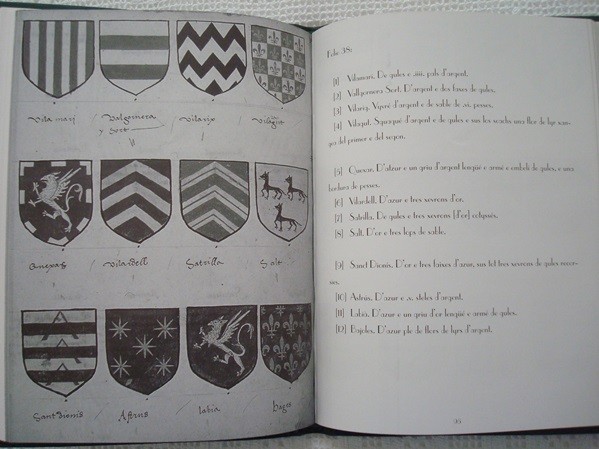 Vila mari
Valgornera
y sort
Vilarix
Vilagut
Quexas
Vilardell
Satrilla
Salt
Sant dionis
Astrus
labia
Folio 38:
[1] Vilamarí. De gules e .iiii. pals d'argent.
[2] Vallgornera Sort. D'argent e dos faxes de gules.
[3] Vilarig. Viperé d'argent e de sable de .vi. pesses.
[4] Vilagut. Squaqué d'argent e de gules e sus los scachs una flor de lirs
gea del primer e del segon.
[5] Quexar. D'atzur e un griu d'argent lengüé e armé e embeli de gules, e una
bordura de pesses.
[6] Vilardell. D'azur e tres xevrons d'or.
[7] Satrilla. De gules e tres xevrons [d'or]
[8] Salt. D'or e tres lops de sable.
[9] Sanct Dionís. D'or e tres faixes d'azur, sus tot tres xevrons de gules
[10] Astrús. D'azur e .v. steles d'argent.
[11] Labià. D'azur e un griu d'or lengüé e armé de gules.
[12] D'azur ple de flors de lyrs d'argent.